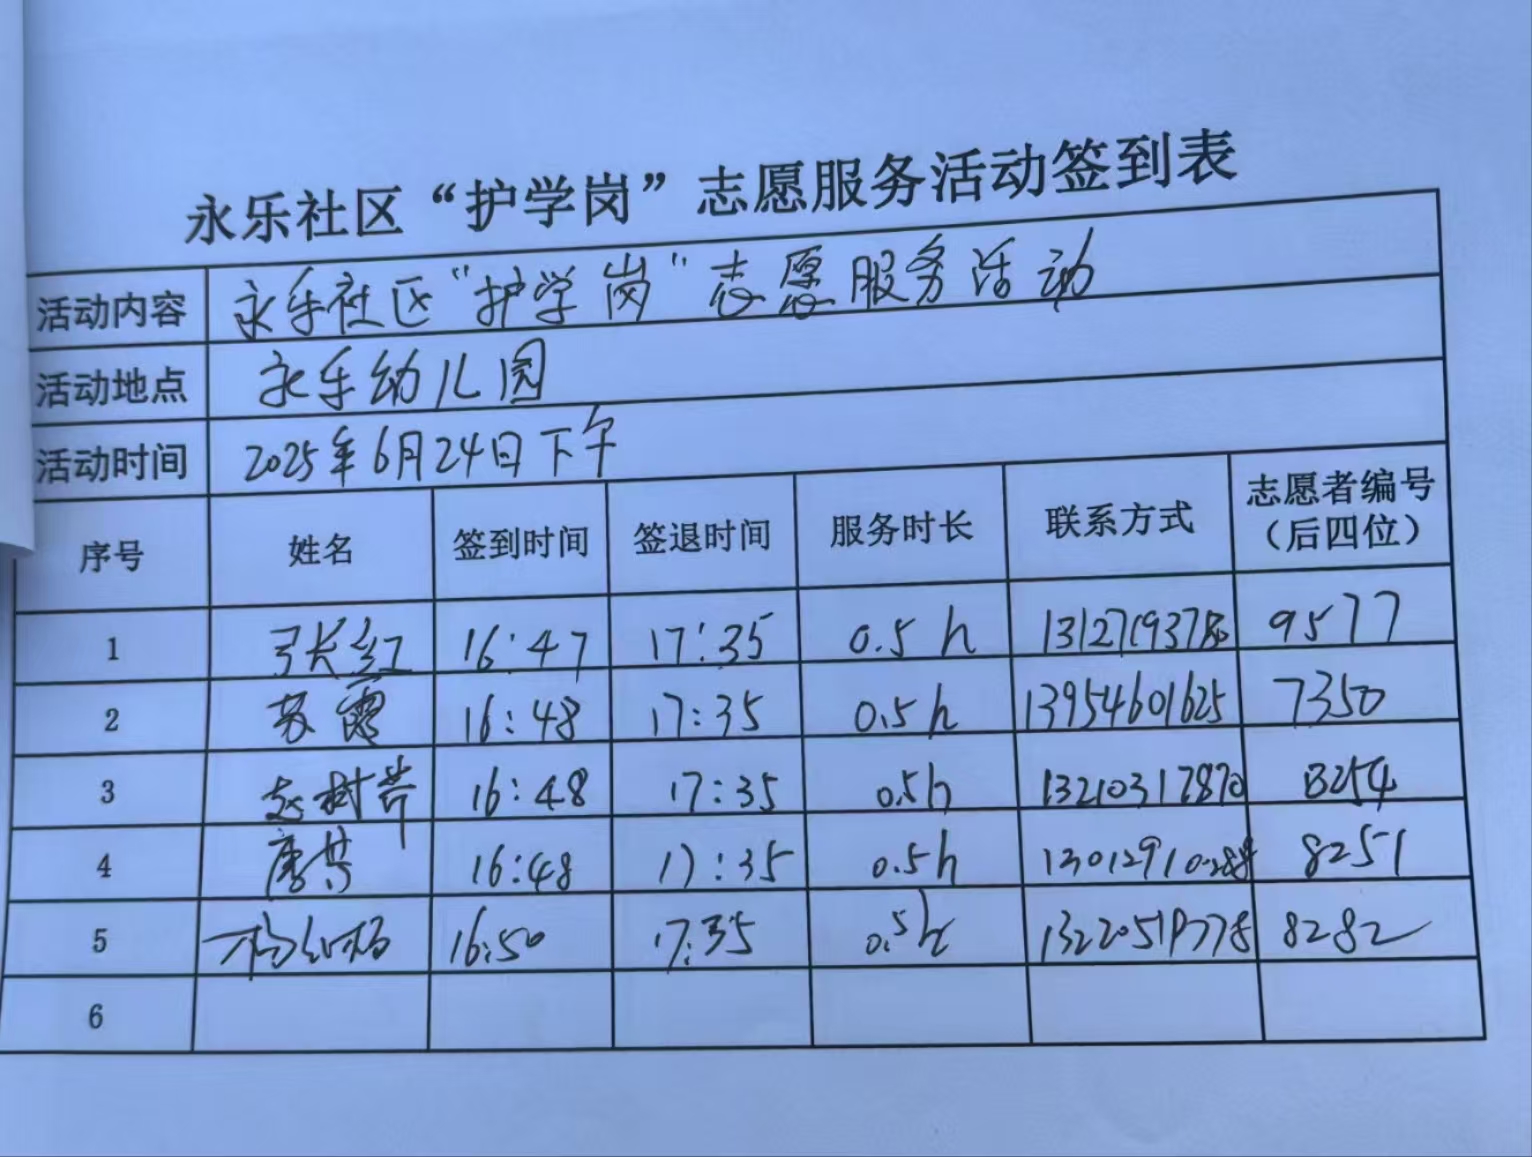 永乐社区“护学岗”志愿服务活动签到表
活动内容 永乐社区“护学岗”志愿服务活动
活动地点 永乐幼儿园
活动时间 2025年6月24日下午
序号 姓名 签到时间 签退时间 服务时长 联系方式 志愿者编号（后四位）
1 张红 16:47 17:35 0.5h 9577
2 苏霞 16:48 17:35 0.5h 13954601625 7350
3 16:48 17:35 0.5h 13210317870
4 唐芬 16:48 17:35 0.5h 8251
5 16:50 17:35 0.5h 8282
6